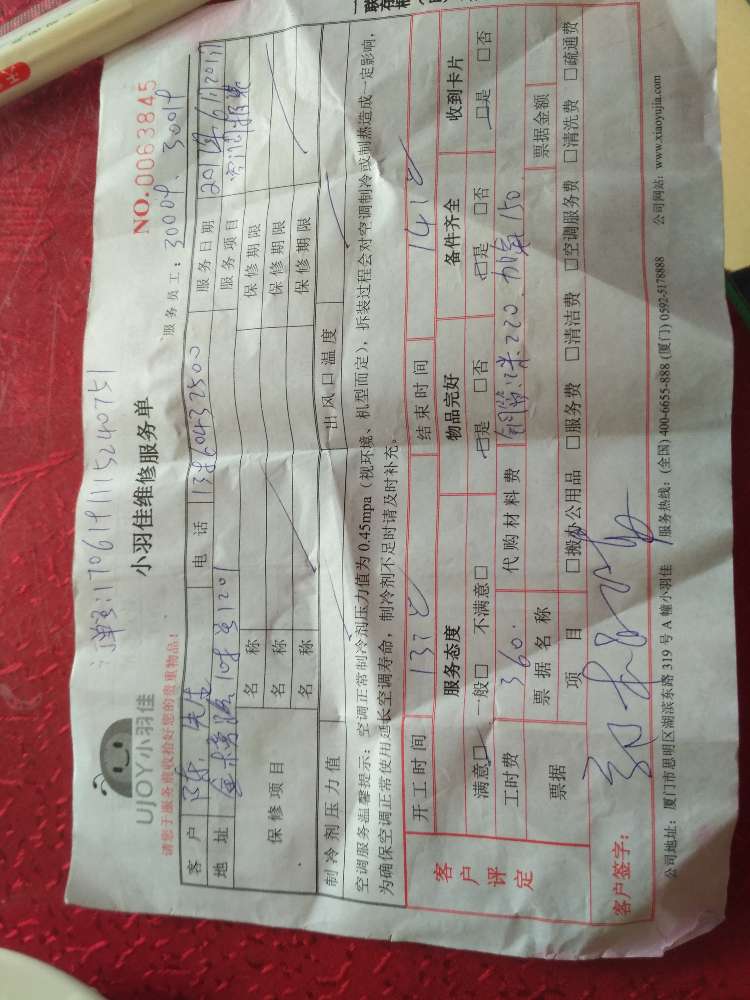 订单号:1706191115240751
UJOY小羽佳
小羽佳维修服务单
NO.0063845
请您于服务前收拾好您的贵重物品!
服务员工:
客户 陈先生 电话 13860432500 服务日期
地址 10号 1201 服务项目
保修项目 名称 保修期限
名称 保修期限
名称 保修期限
制冷剂压力值 出风口温度
空调服务温馨提示:空调正常制冷剂压力值为0.45mpa(视环境、机型而定),拆装过程会对空调制冷或制热造成一定影响,
为确保空调正常使用延长空调寿命,制冷剂不足时请及时补充。
客户评定
开工时间 结束时间
服务态度 物品完好 备件齐全 收到卡片
满意□ 一般□ 不满意□ □是 □否 □是 □否 □是 □否
工时费 360. 代购材料费 铜管2米220. 加氟150.
票据 票据名称 票据金额
项目 □搬办公用品 □服务费 □清洁费 □空调服务费 □清洗费 □疏通费
客户签字:
公司地址:厦门市思明区湖滨东路319号A幢小羽佳 服务热线:(全国)400-6655-888 (厦门)0592-5178888 公司网站:www.xiaoyujia.com